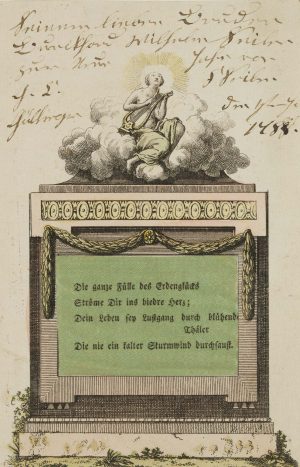 Seinem lieben Bruder
Wilhelm
zum Neu Jahr von
1788.
Die ganze Fülle des Erdenglücks
Ströme Dir ins biedre Herz;
Dein Leben sey Lustgang durch blühende
Thäler
Die nie ein kalter Sturmwind durchsaust.